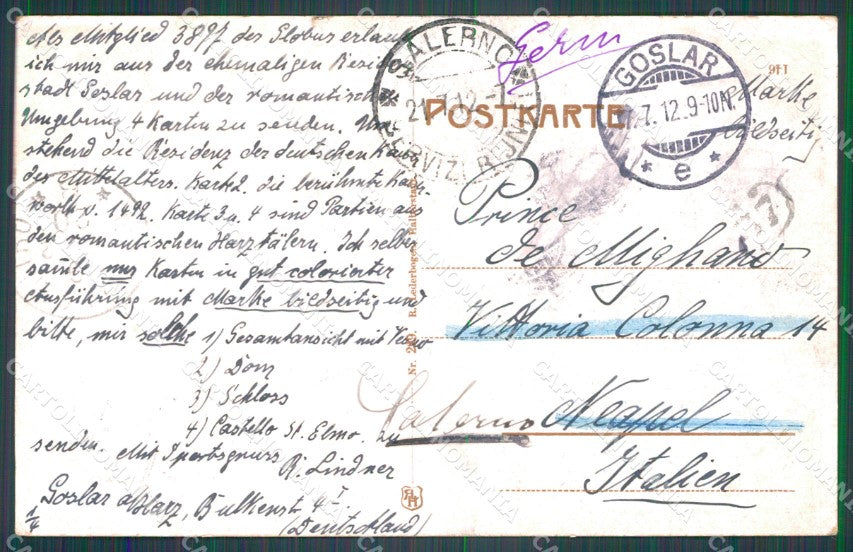 Als Mitglied 3897 des Globus erlaube
ich mir aus der ehemaligen Residenz
stadt Goslar und der romantischen
Umgebung 4 Karten zu senden. Um
stehend die Residenz der deutschen Kaiser
des Mittelalters. Karte 2. die berühmte
v. 1492. Karte 3 u. 4 sind Partien aus
den romantischen Harztälern. Ich selber
samle nur Karten in gut colorierter
Ausführung mit Marke bildseitig und
bitte, mir solche 1) Gesamtansicht mit Vesuv
2) Dom
3) Schloss
4) Castello St. Elmo. zu
senden. Mit Sportsgruss
R. Lindner
Goslar a/Harz, 4 I
(Deutschland)
1/4
Nr. R. Lederbogen, Halberstadt
Germ
SALERNO
21.7.12
SERVIZI RIUNITI
POSTKARTE
GOSLAR
7.12.9-10N.
* e *
911
Marke
bildseitig
7
Prince
de Mighano
Vittoria Colonna 14
Salerno Neapel
Italien
CARTOLINOMANIA